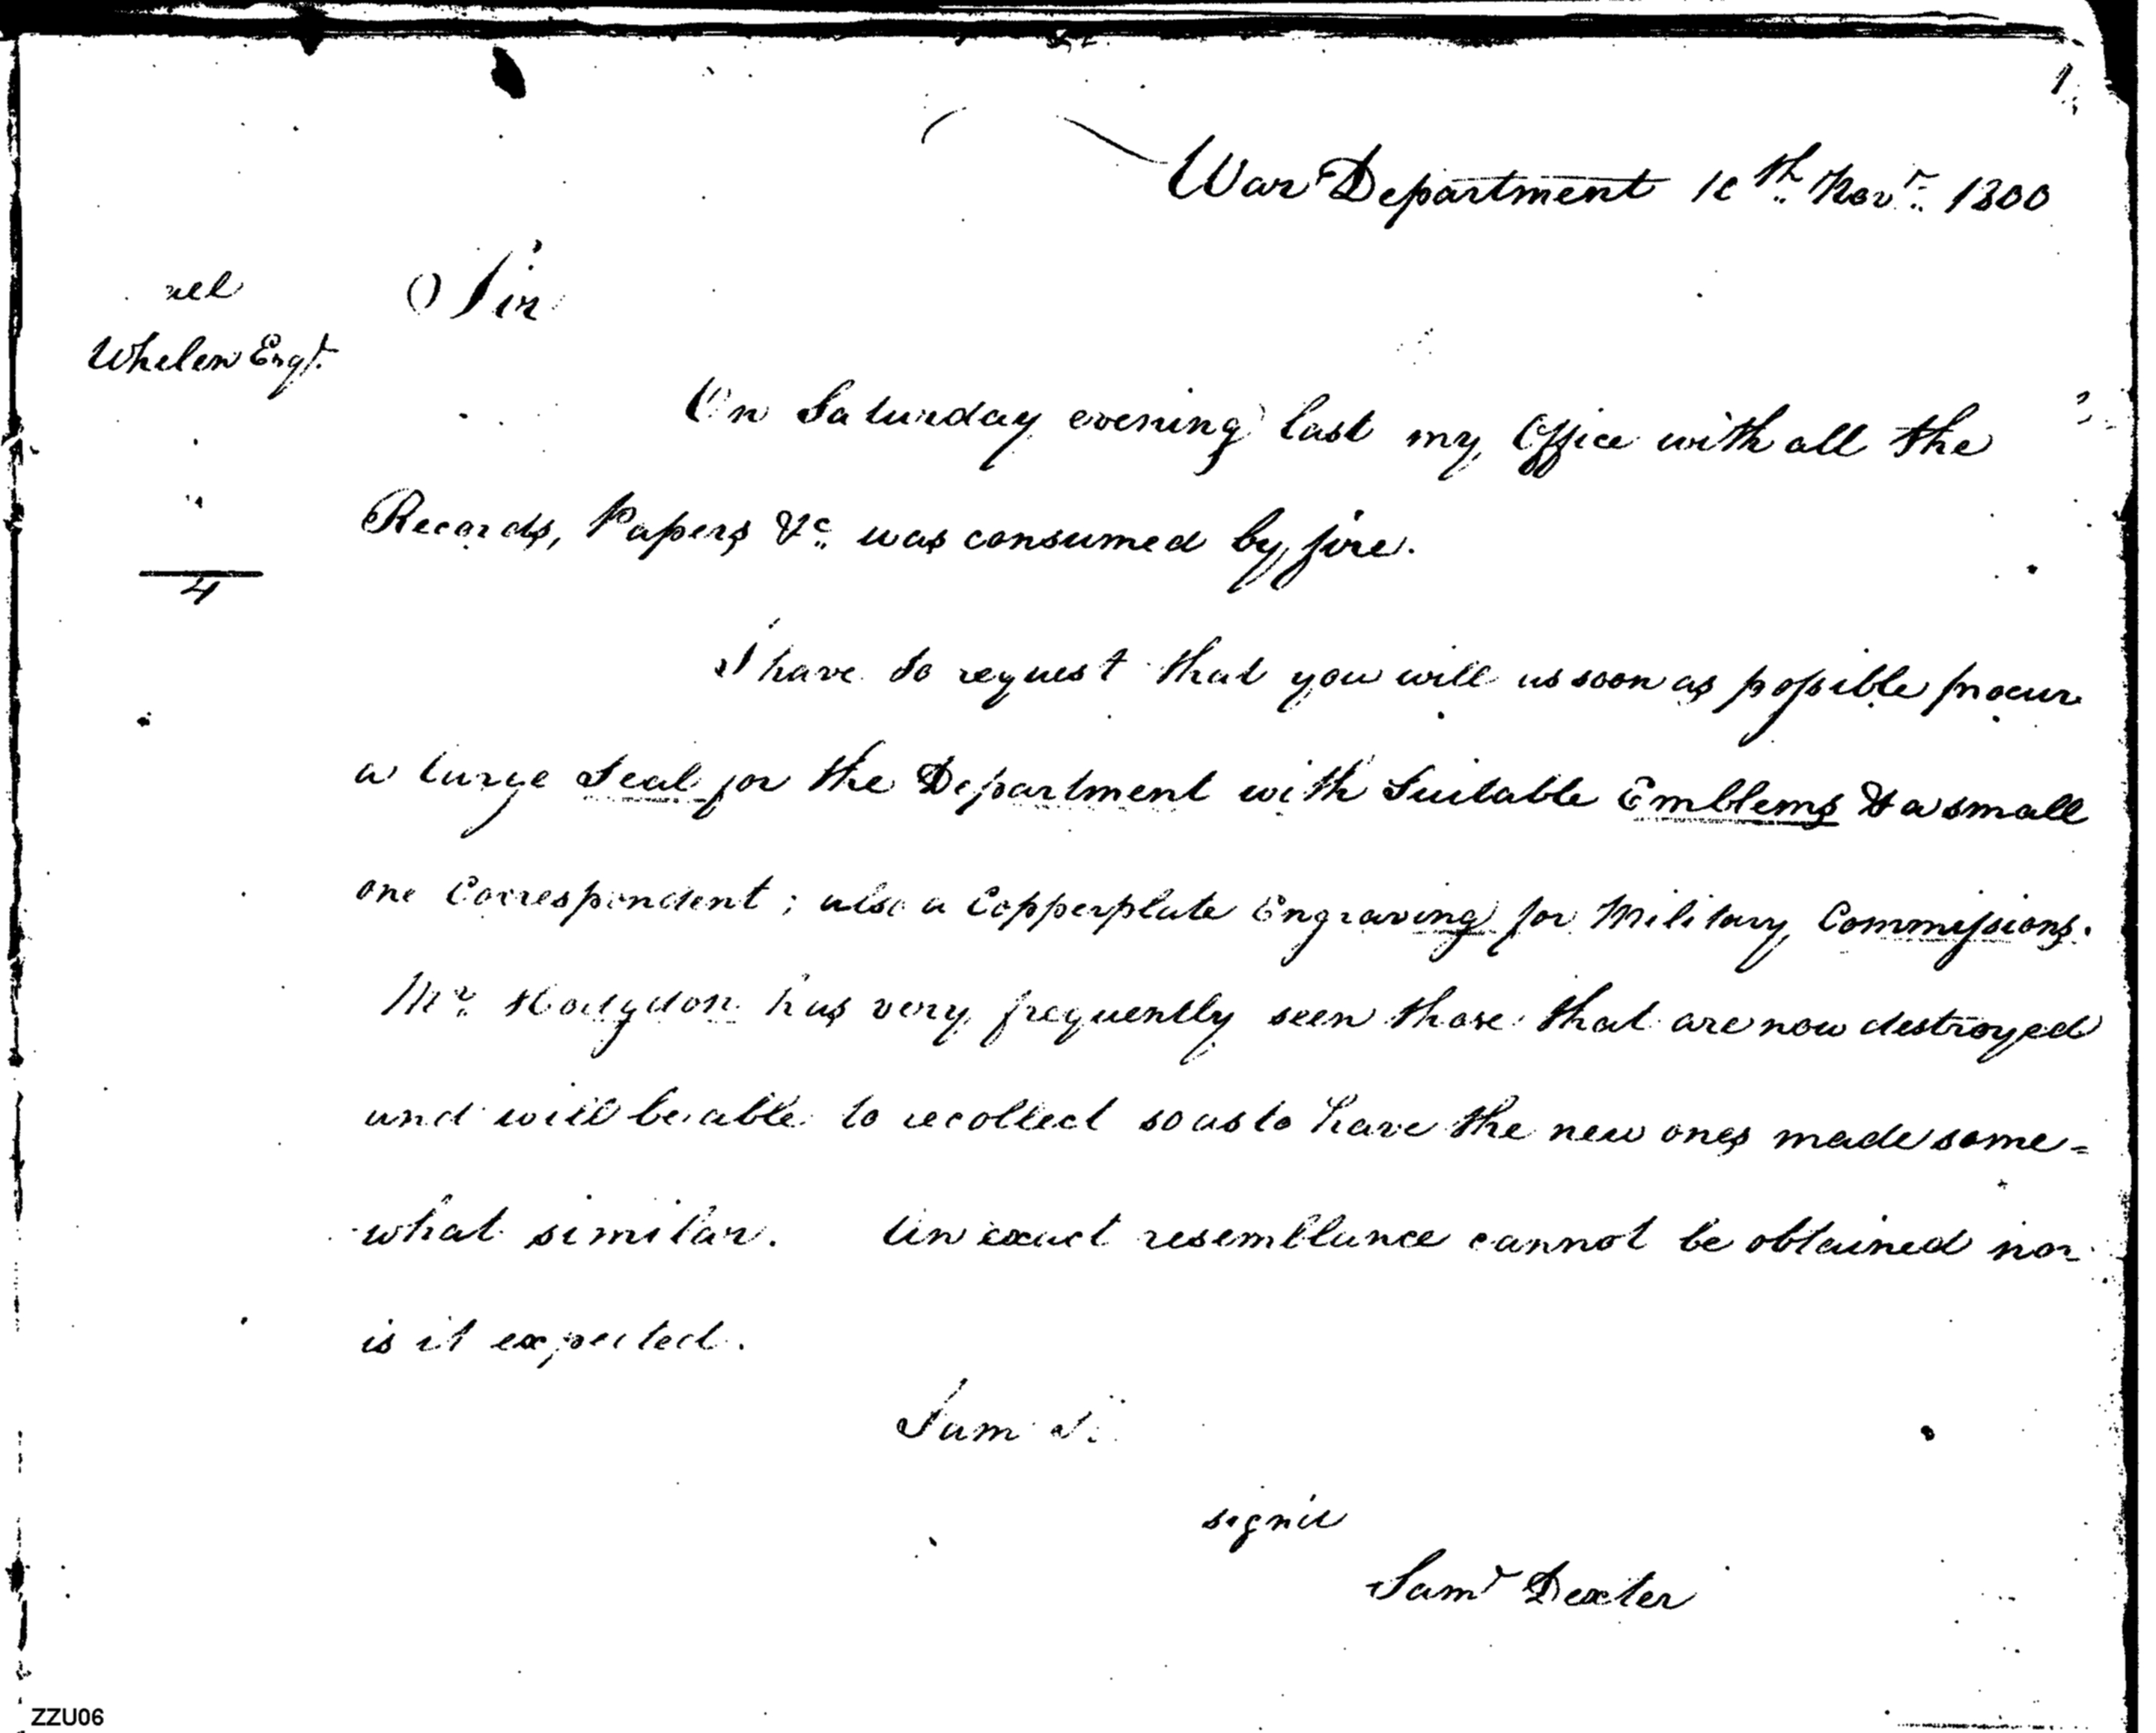 1
War Department 10th Novr. 1800
Sir
Whelen Esqr.
On Saturday evening last my Office with all the
Records, Papers &c. was consumed by fire.
4
I have to request that you will as soon as possible procur
a large Seal for the Department with Suitable Emblems & a small
one Correspondent; also a Copperplate Engraving for Military Commissions.
Mr. Hodgdon has very frequently seen those that are now destroyed
and will be able to recollect so as to have the new ones made some=
what similar. An exact resemblance cannot be obtained nor
is it expected.
I am S.
sign'd
Saml Dexter
ZZU06